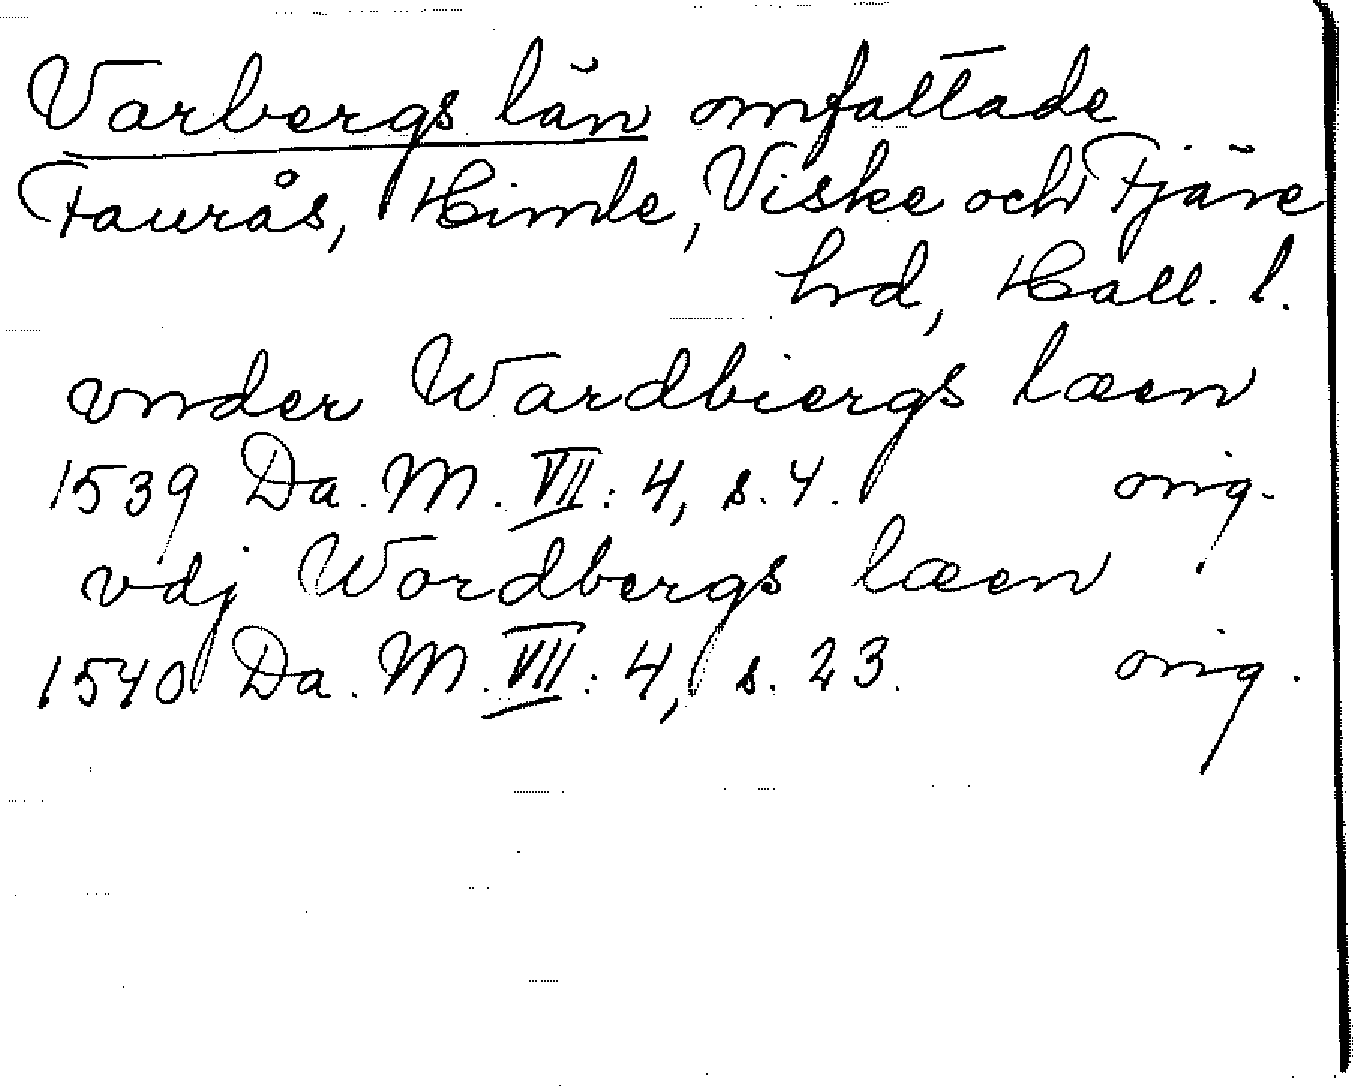 Varbergs län omfattade
Faurås, Himle, Viske och Fjäre
hrd, Hall. l.
vnder Wardbiergs læen
1539 Da. M. VII: 4, s. 4. orig.
vdj Wordbergs læen
1540 Da. M. VII: 4, s. 23. orig.